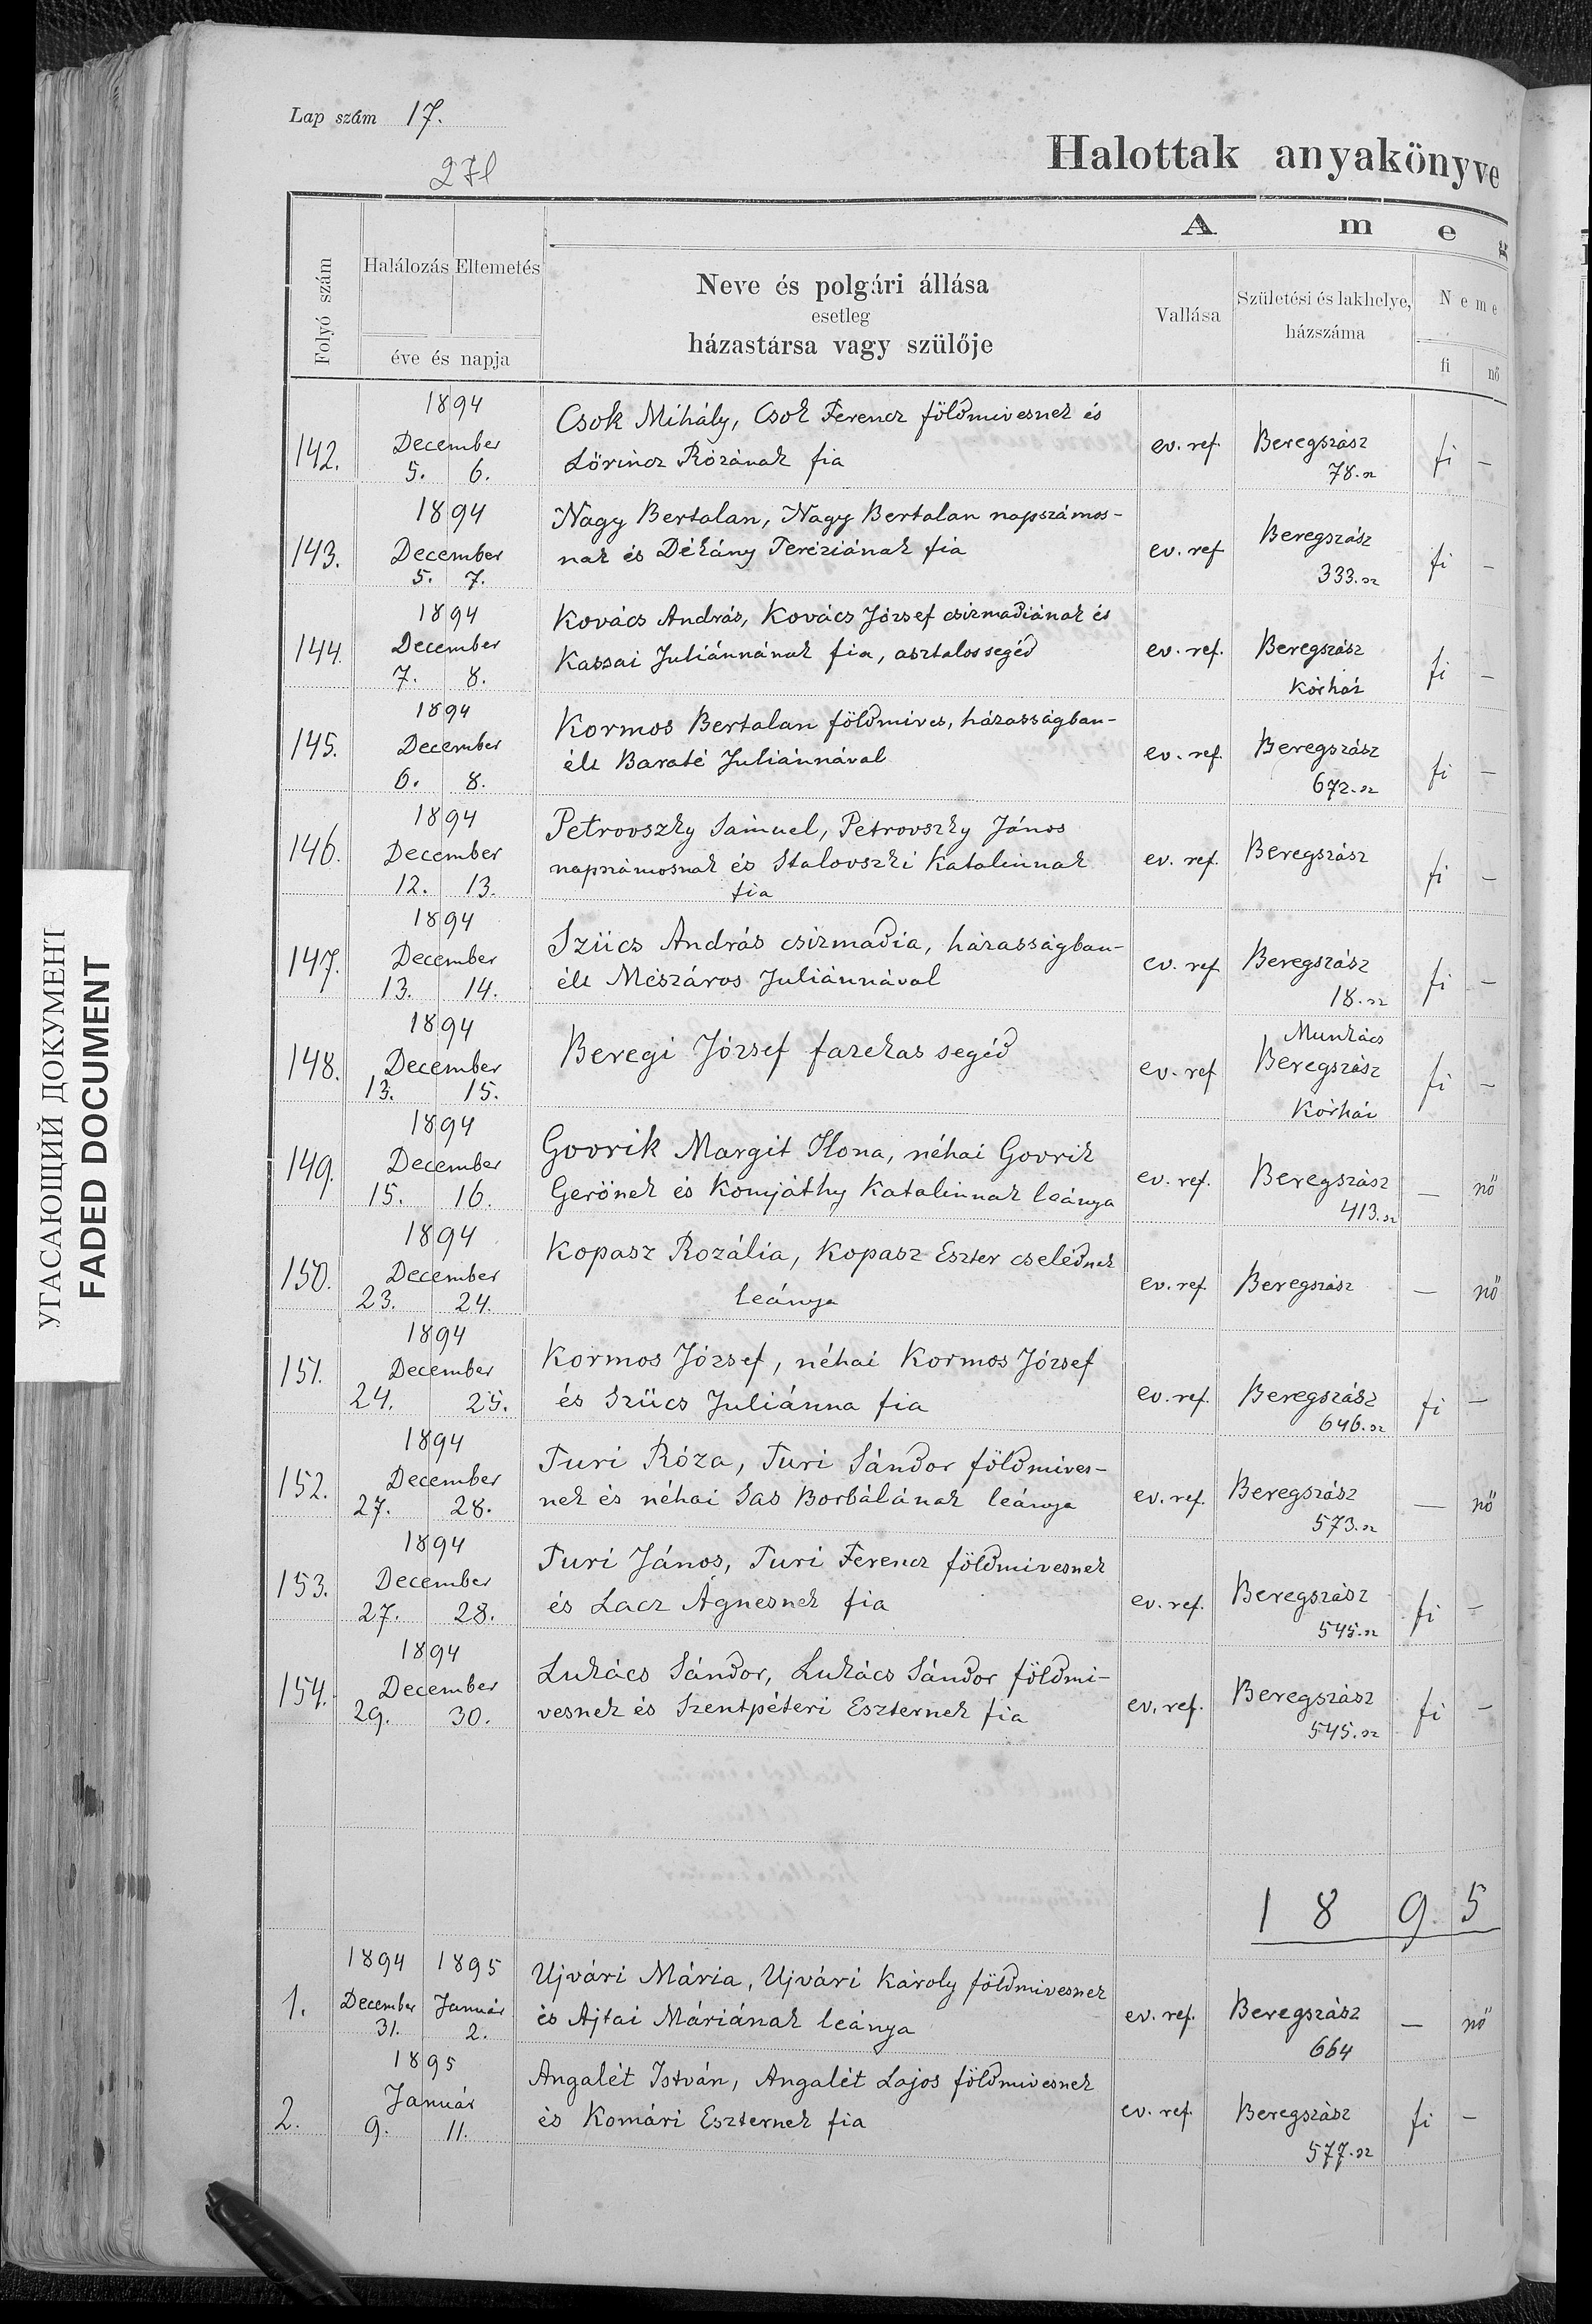 Lap szám 17.
27l
Halottak anyakönyve
A m e g
Folyó szám
Halálozás Eltemetés
éve és napja
Neve és polgári állása
esetleg
házastársa vagy szülője
Vallása
Születési és lakhelye,
házszáma
Neme
fi nő
1894
142. December 5. 6.
Csok Mihály, Csok Ferencz földmivesnek és
Lőrincz Rózának fia
ev. ref. Beregszász 78. sz fi –
1894
143. December 5. 7.
Nagy Bertalan, Nagy Bertalan napszámos-
nak és Dékány Teréziának fia
ev. ref Beregszász 333. sz fi –
1894
144. December 7. 8.
Kovács András, Kovács József csizmadiának és
Kassai Juliánnának fia, asztalossegéd
ev. ref. Beregszász Kórház fi –
1894
145. December 6. 8.
Kormos Bertalan földmives, házasságban-
élt Baraté Juliánnával
ev. ref. Beregszász 672. sz fi –
1894
146. December 12. 13.
Petrovszky Sámuel, Petrovszky János
napszámosnak és Stalovszki Katalinnak
fia
ev. ref. Beregszász fi –
1894
147. December 13. 14.
Szücs András csizmadia, házasságban-
élt Mészáros Juliánnával
ev. ref Beregszász 18. sz fi –
1894
148. December 13. 15.
Beregi József fazekas segéd
ev. ref Munkács Beregszász Kórház fi –
1894
149. December 15. 16.
Govrik Margit Ilona, néhai Govrik
Gerőnek és Komjáthy Katalinnak leánya
ev. ref. Beregszász 413. sz – nő
1894
150. December 23. 24.
Kopasz Rozália, Kopasz Eszter cselédnek
leánya
ev. ref. Beregszász – nő
1894
151. December 24. 25.
Kormos József, néhai Kormos József
és Szücs Juliánna fia
ev. ref. Beregszász 646. sz fi –
1894
152. December 27. 28.
Turi Róza, Turi Sándor földmives-
nek és néhai Sas Borbálának leánya
ev. ref. Beregszász 573. sz – nő
1894
153. December 27. 28.
Turi János, Turi Ferencz földmivesnek
és Lacz Ágnesnek fia
ev. ref. Beregszász 545. sz fi –
1894
154. December 29. 30.
Lukács Sándor, Lukács Sándor földmi-
vesnek és Szentpéteri Eszternek fia
ev. ref. Beregszász 545. sz fi –
1895
1894 1895
1. December 31. Január 2.
Ujvári Mária, Ujvári Károly földmivesnek
és Ajtai Máriának leánya
ev. ref. Beregszász 664 – nő
1895
2. Január 9. 11.
Angalét István, Angalét Lajos földmivesnek
és Komári Eszternek fia
ev. ref. Beregszász 577. sz fi –
УГАСАЮЩИЙ ДОКУМЕНТ
FADED DOCUMENT